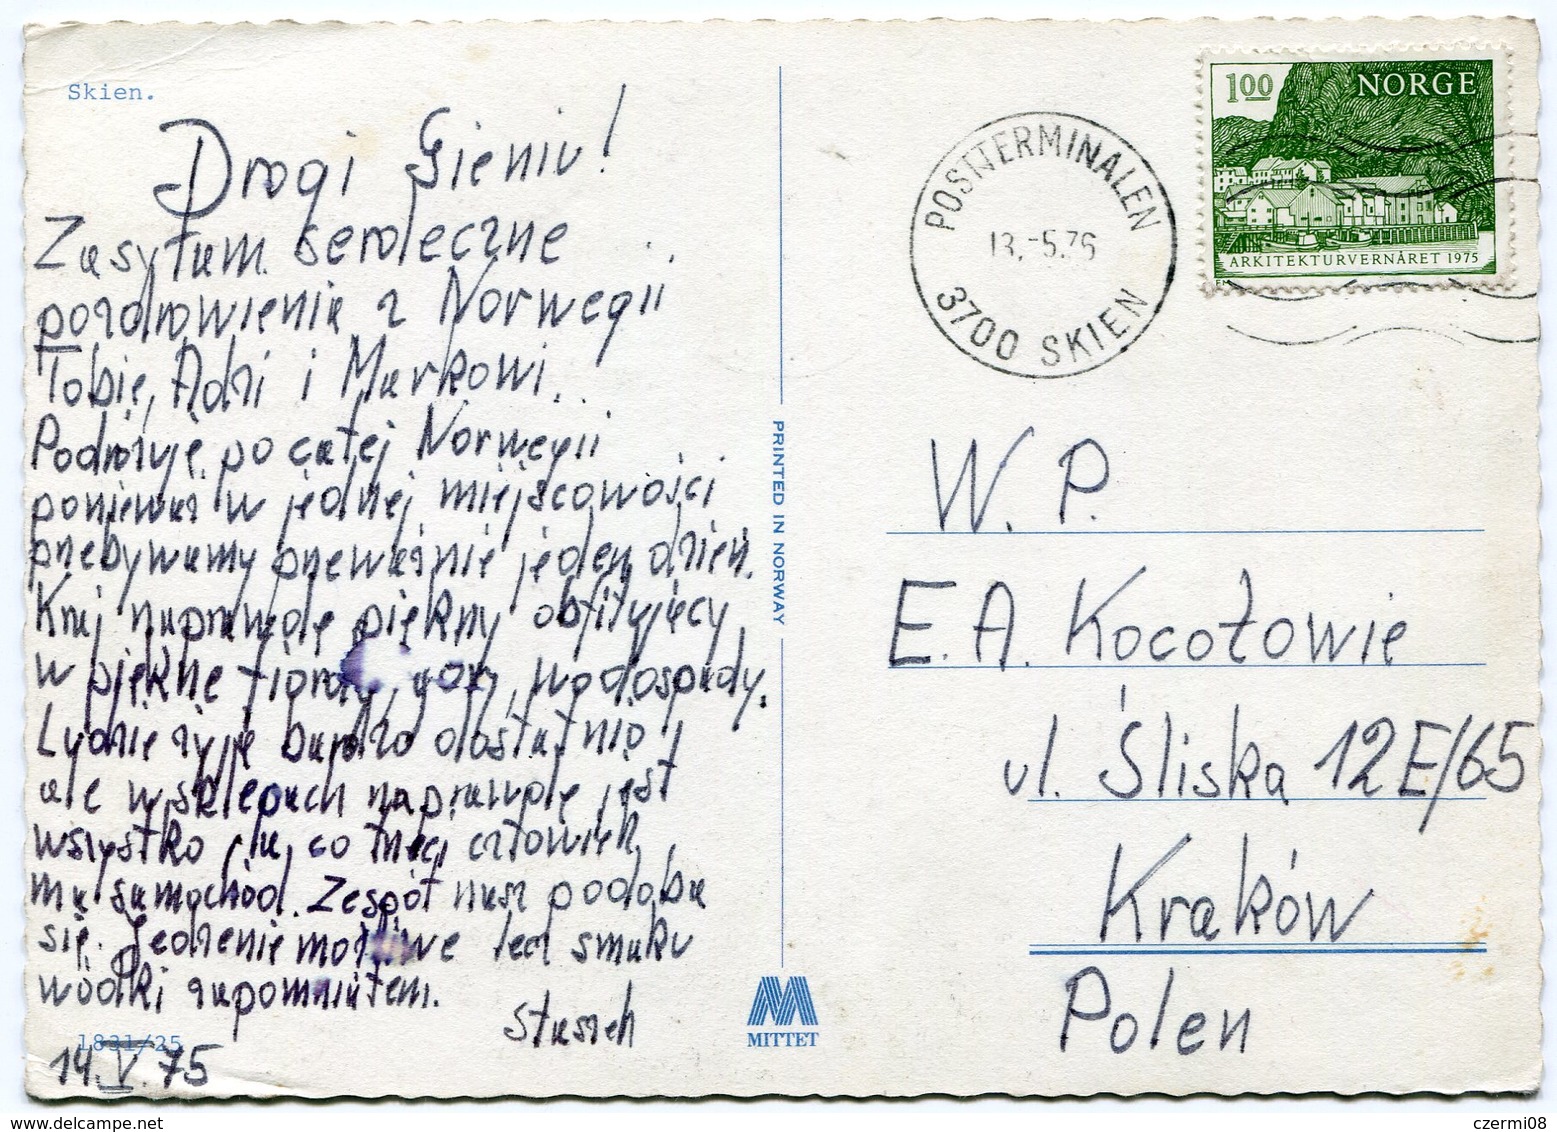 Skien.
Drogi Gieniu!
Zasyłam serdeczne
pozdrowienia z Norwegii
Tobie, Adzi i Markowi.
Podróżuję po całej Norwegii
ponieważ w jednej miejscowości
przebywamy przeważnie jeden dzień.
Kraj naprawdę piękny obfitujący
w piękne fiordy, góry, wodospady.
Ludzie żyją bardzo dostatnio,
ale w sklepach naprawdę jest
wszystko, tu co trzeci człowiek
ma samochód. Zespół nasz podoba
się. Jedzenie możliwe lecz smaku
wódki zapomniałem.
Staszek
1831/25
14.V.75
PRINTED IN NORWAY
MITTET
POSTTERMINALEN
3700 SKIEN
1.00 NORGE
ARKITEKTURVERNÅRET 1975
W. P.
E. A. Kocołowie
ul. Śliska 12E/65
Kraków
Polen
www.delcampe.net
czermi08